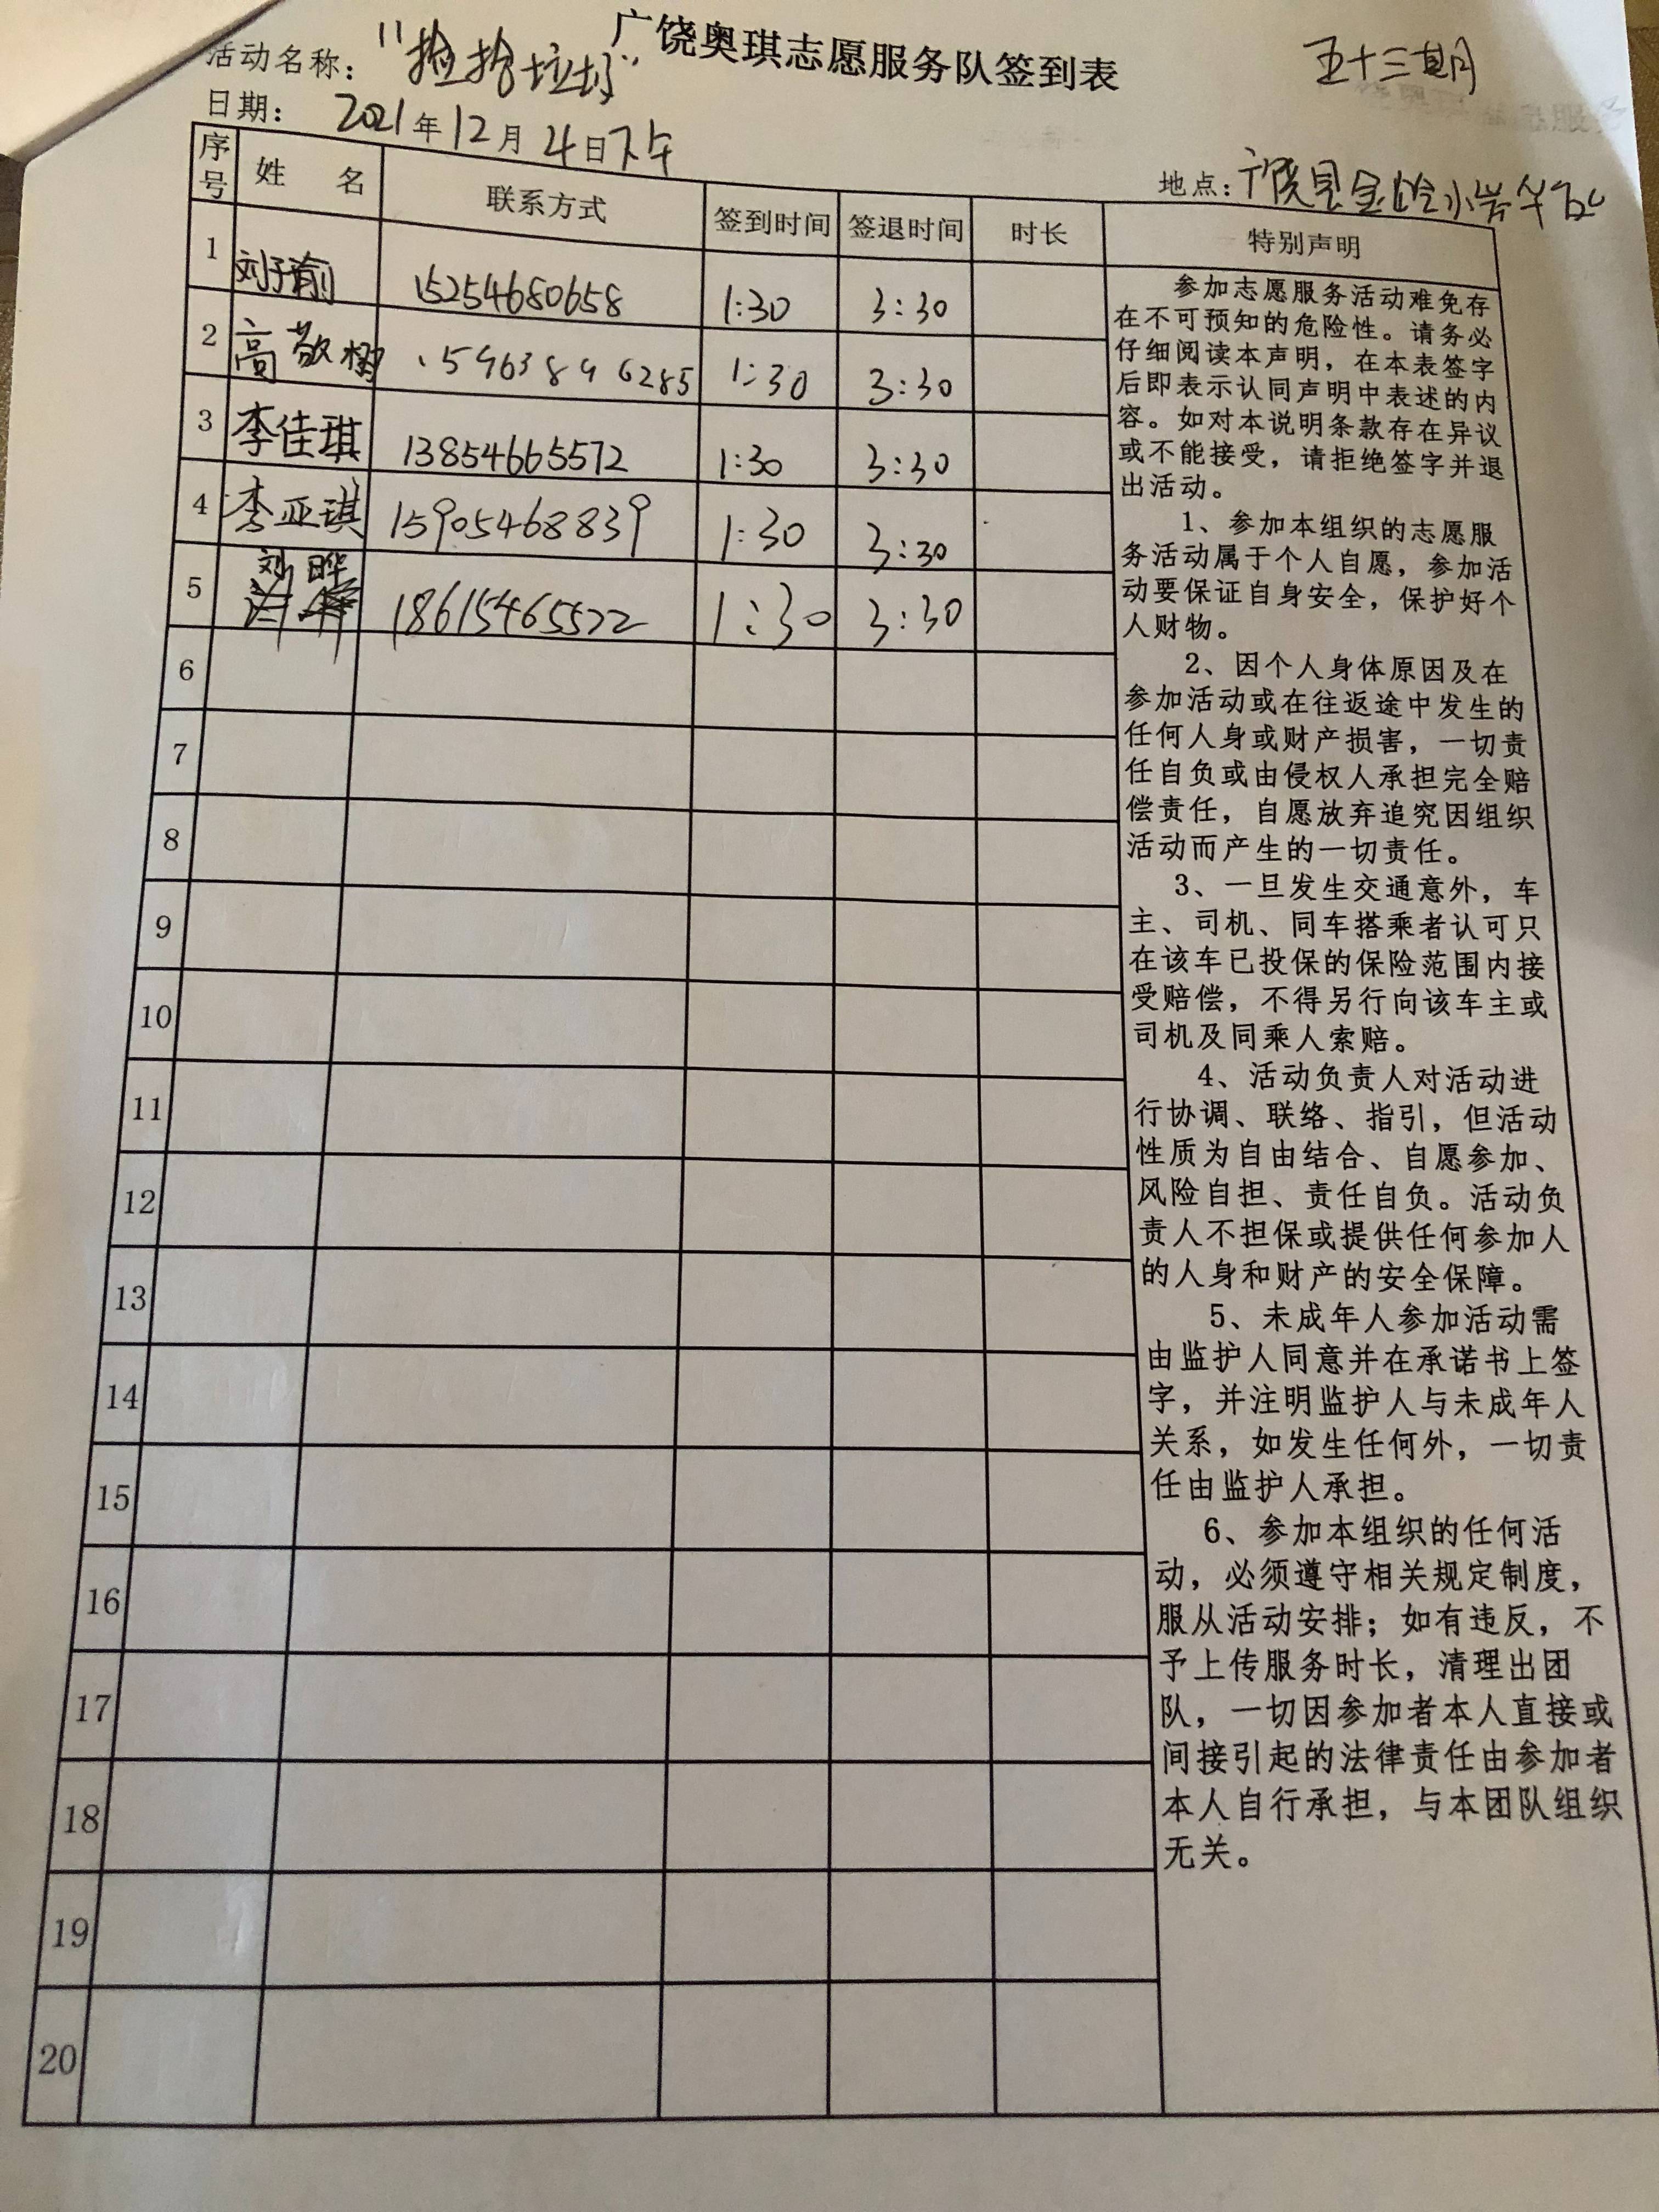 广饶奥琪志愿服务队签到表
五十三期
活动名称：“捡拾垃圾”
日期： 2021年12月4日下午
地点：广饶县金岭小学
序号 姓 名 联系方式 签到时间 签退时间 时长 特别声明
1 刘于瑜 15254680658 1:30 3:30
2 高敬 15963896285 1:30 3:30
3 李佳琪 13854665572 1:30 3:30
4 李亚琪 15905468839 1:30 3:30
5 刘晔 18615465522 1:30 3:30
6
7
8
9
10
11
12
13
14
15
16
17
18
19
20
参加志愿服务活动难免存
在不可预知的危险性。请务必
仔细阅读本声明，在本表签字
后即表示认同声明中表述的内
容。如对本说明条款存在异议
或不能接受，请拒绝签字并退
出活动。
1、参加本组织的志愿服
务活动属于个人自愿，参加活
动要保证自身安全，保护好个
人财物。
2、因个人身体原因及在
参加活动或在往返途中发生的
任何人身或财产损害，一切责
任自负或由侵权人承担完全赔
偿责任，自愿放弃追究因组织
活动而产生的一切责任。
3、一旦发生交通意外，车
主、司机、同车搭乘者认可只
在该车已投保的保险范围内接
受赔偿，不得另行向该车主或
司机及同乘人索赔。
4、活动负责人对活动进
行协调、联络、指引，但活动
性质为自由结合、自愿参加、
风险自担、责任自负。活动负
责人不担保或提供任何参加人
的人身和财产的安全保障。
5、未成年人参加活动需
由监护人同意并在承诺书上签
字，并注明监护人与未成年人
关系，如发生任何外，一切责
任由监护人承担。
6、参加本组织的任何活
动，必须遵守相关规定制度，
服从活动安排；如有违反，不
予上传服务时长，清理出团
队，一切因参加者本人直接或
间接引起的法律责任由参加者
本人自行承担，与本团队组织
无关。